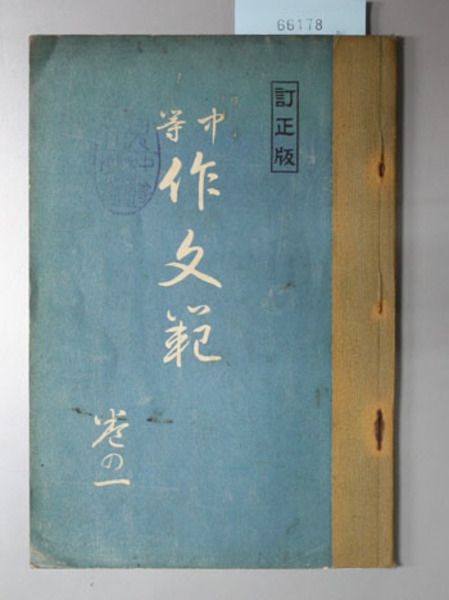 66178
訂正版
中等
作文範
巻の一